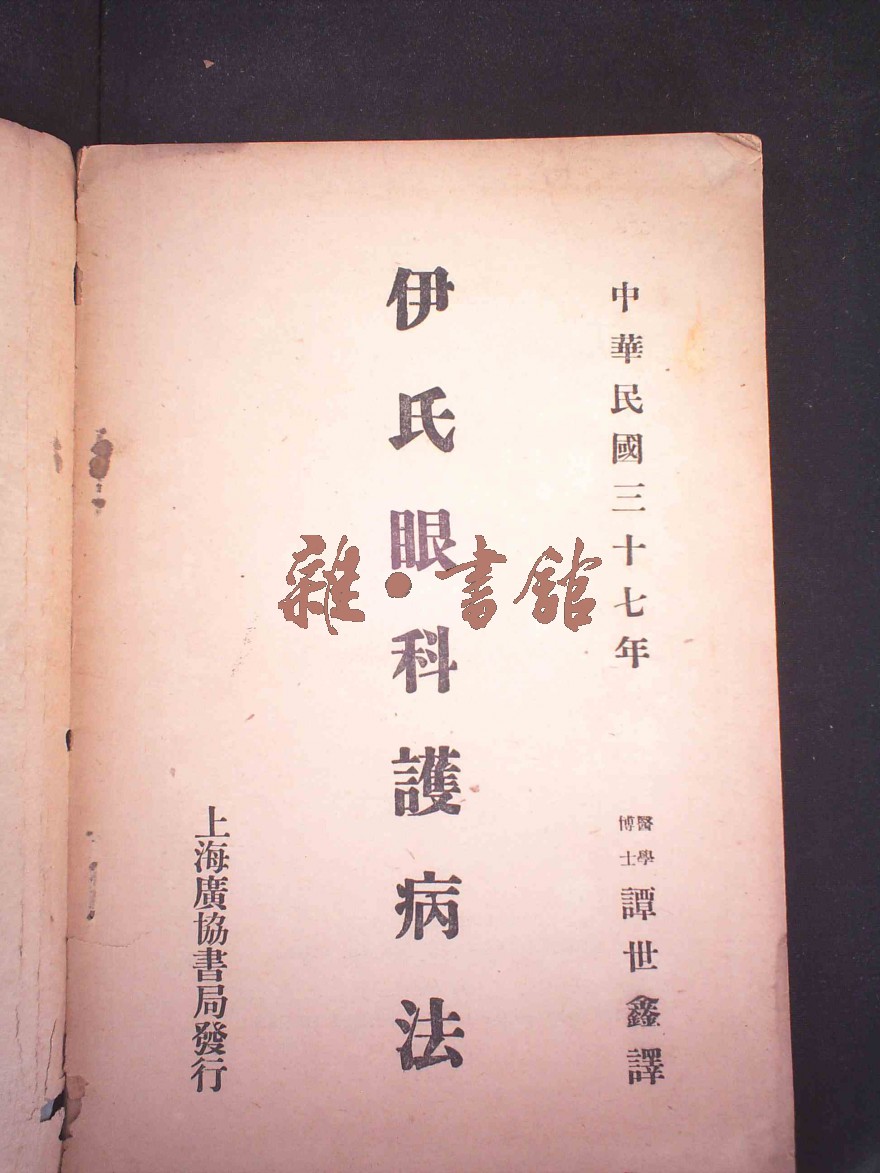 中華民國三十七年
醫學博士譚世鑫譯
伊氏眼科護病法
上海廣協書局發行
雜·書館